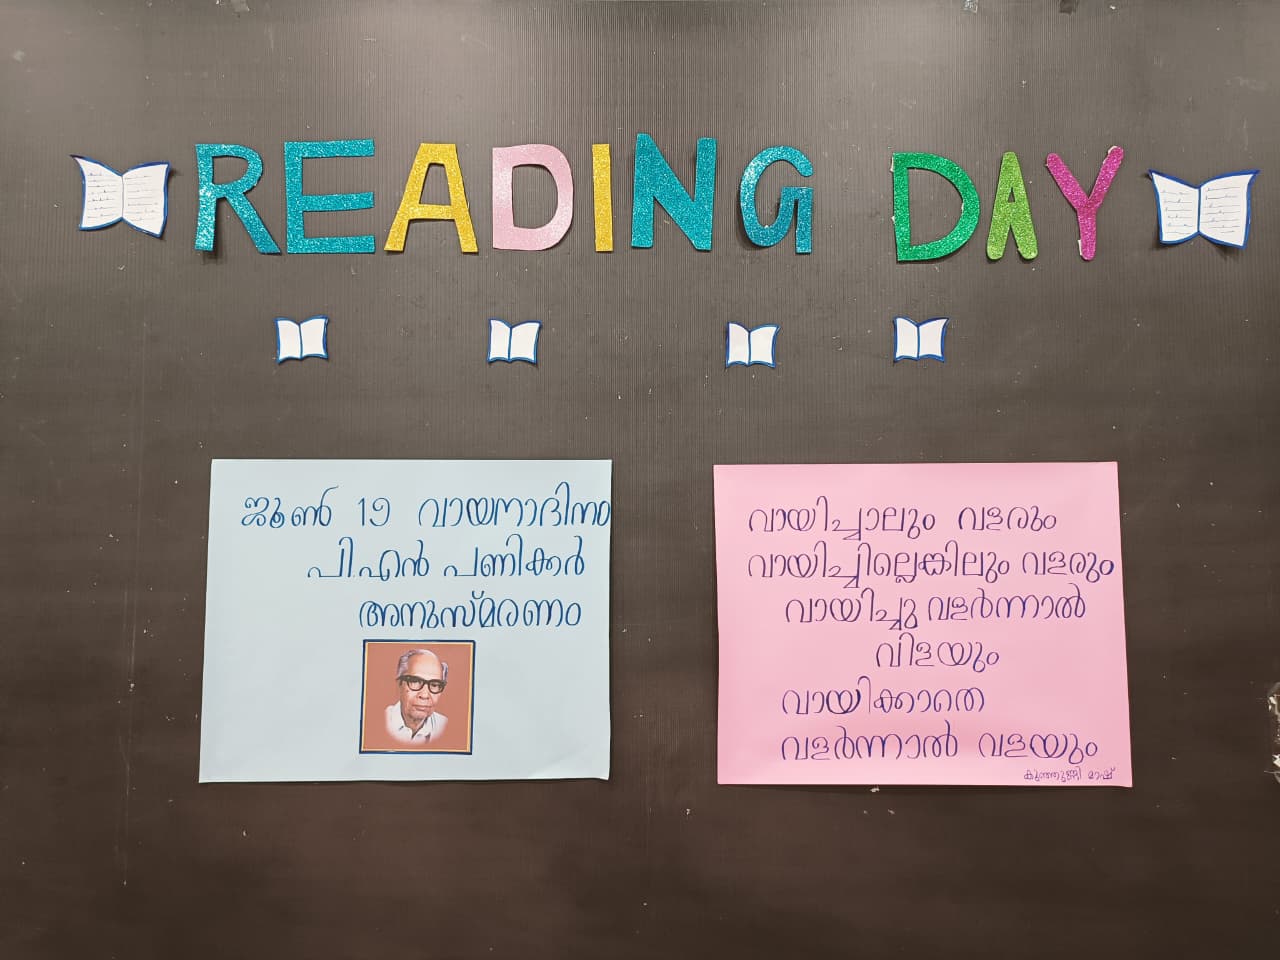 READING DAY
ജൂൺ 19 വായനാദിനം
പി.എൻ പണിക്കർ
അനുസ്മരണം
വായിച്ചാലും വളരും
വായിച്ചില്ലെങ്കിലും വളരും
വായിച്ചു വളർന്നാൽ
വിളയും
വായിക്കാതെ
വളർന്നാൽ വളയും
കുഞ്ഞുണ്ണി മാഷ്